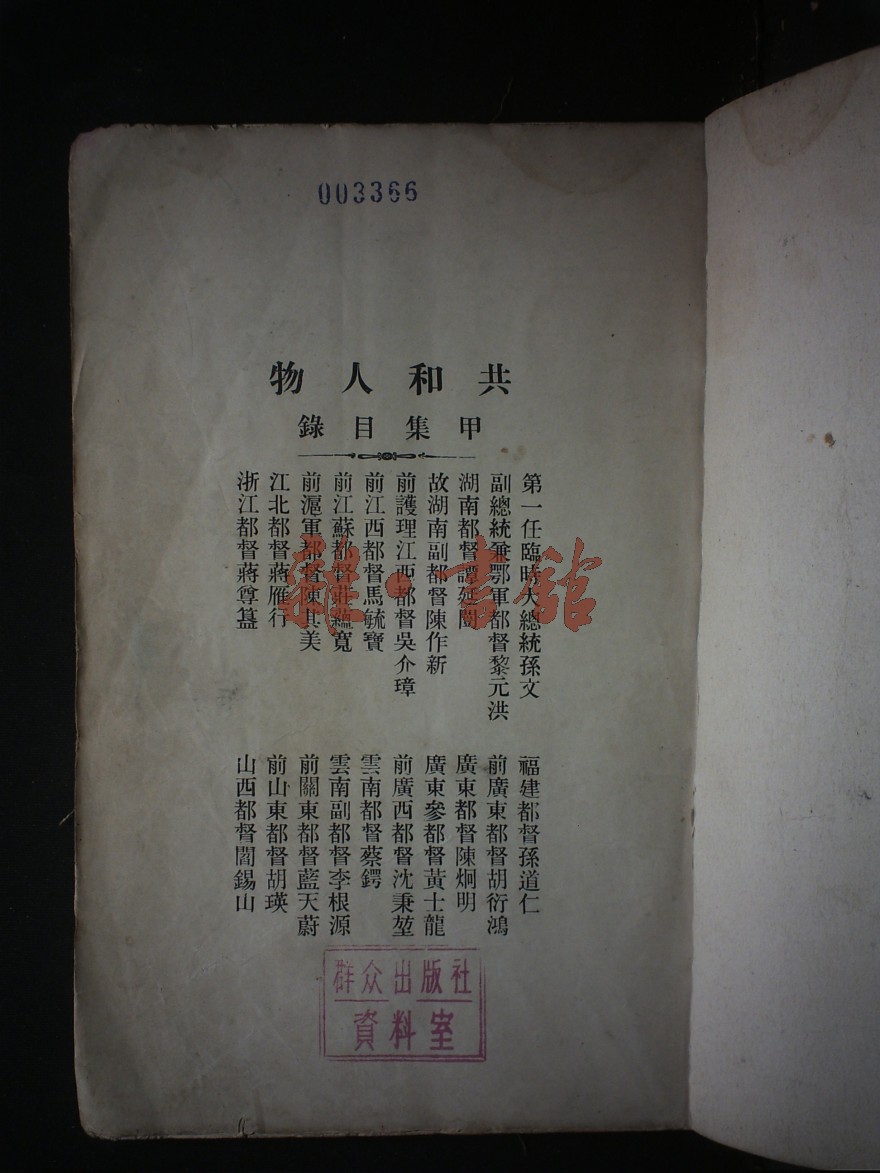 003366
共和人物
甲集目錄
第一任臨時大總統孫文
副總統兼鄂軍都督黎元洪
湖南都督譚延闓
故湖南副都督陳作新
前護理江西都督吳介璋
前江西都督馬毓寶
前江蘇都督莊蘊寬
前滬軍都督陳其美
江北都督蔣雁行
浙江都督蔣尊簋
福建都督孫道仁
前廣東都督胡衍鴻
廣東都督陳炯明
廣東參都督黃士龍
前廣西都督沈秉堃
雲南都督蔡鍔
雲南副都督李根源
前關東都督藍天蔚
前山東都督胡瑛
山西都督閻錫山
雜·書館
群众出版社
資料室